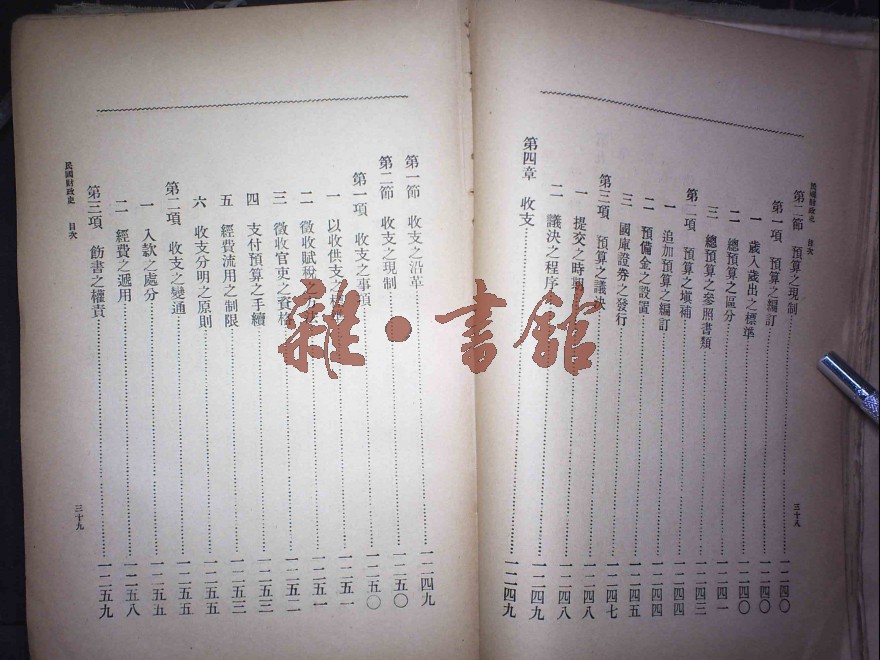 民國財政史 目次 三十八
第二節 預算之現制 一二四〇
第一項 預算之編訂 一二四〇
一 歲入歲出之標準 一二四〇
二 總預算之區分 一二四一
三 總預算之參照書類 一二四三
第二項 預算之塡補 一二四四
一 追加預算之編訂 一二四四
二 預備金之設置 一二四五
三 國庫證券之發行 一二四七
第三項 預算之議決 一二四八
一 提交之時期 一二四八
二 議決之程序 一二四九
第四章 收支 一二四九
第一節 收支之沿革 一二四九
第二節 收支之現制 一二五〇
第一項 收支之事項 一二五〇
一 以收供支之 一二五一
二 徵收賦稅之 一二五一
三 徵收官吏之資格 一二五二
四 支付預算之手續 一二五三
五 經費流用之制限 一二五三
六 收支分明之原則 一二五五
第二項 收支之變通 一二五五
一 入款之處分 一二五五
二 經費之遞用 一二五八
第三項 飭書之權責 一二五九
民國財政史 目次 三十九
雜·書館